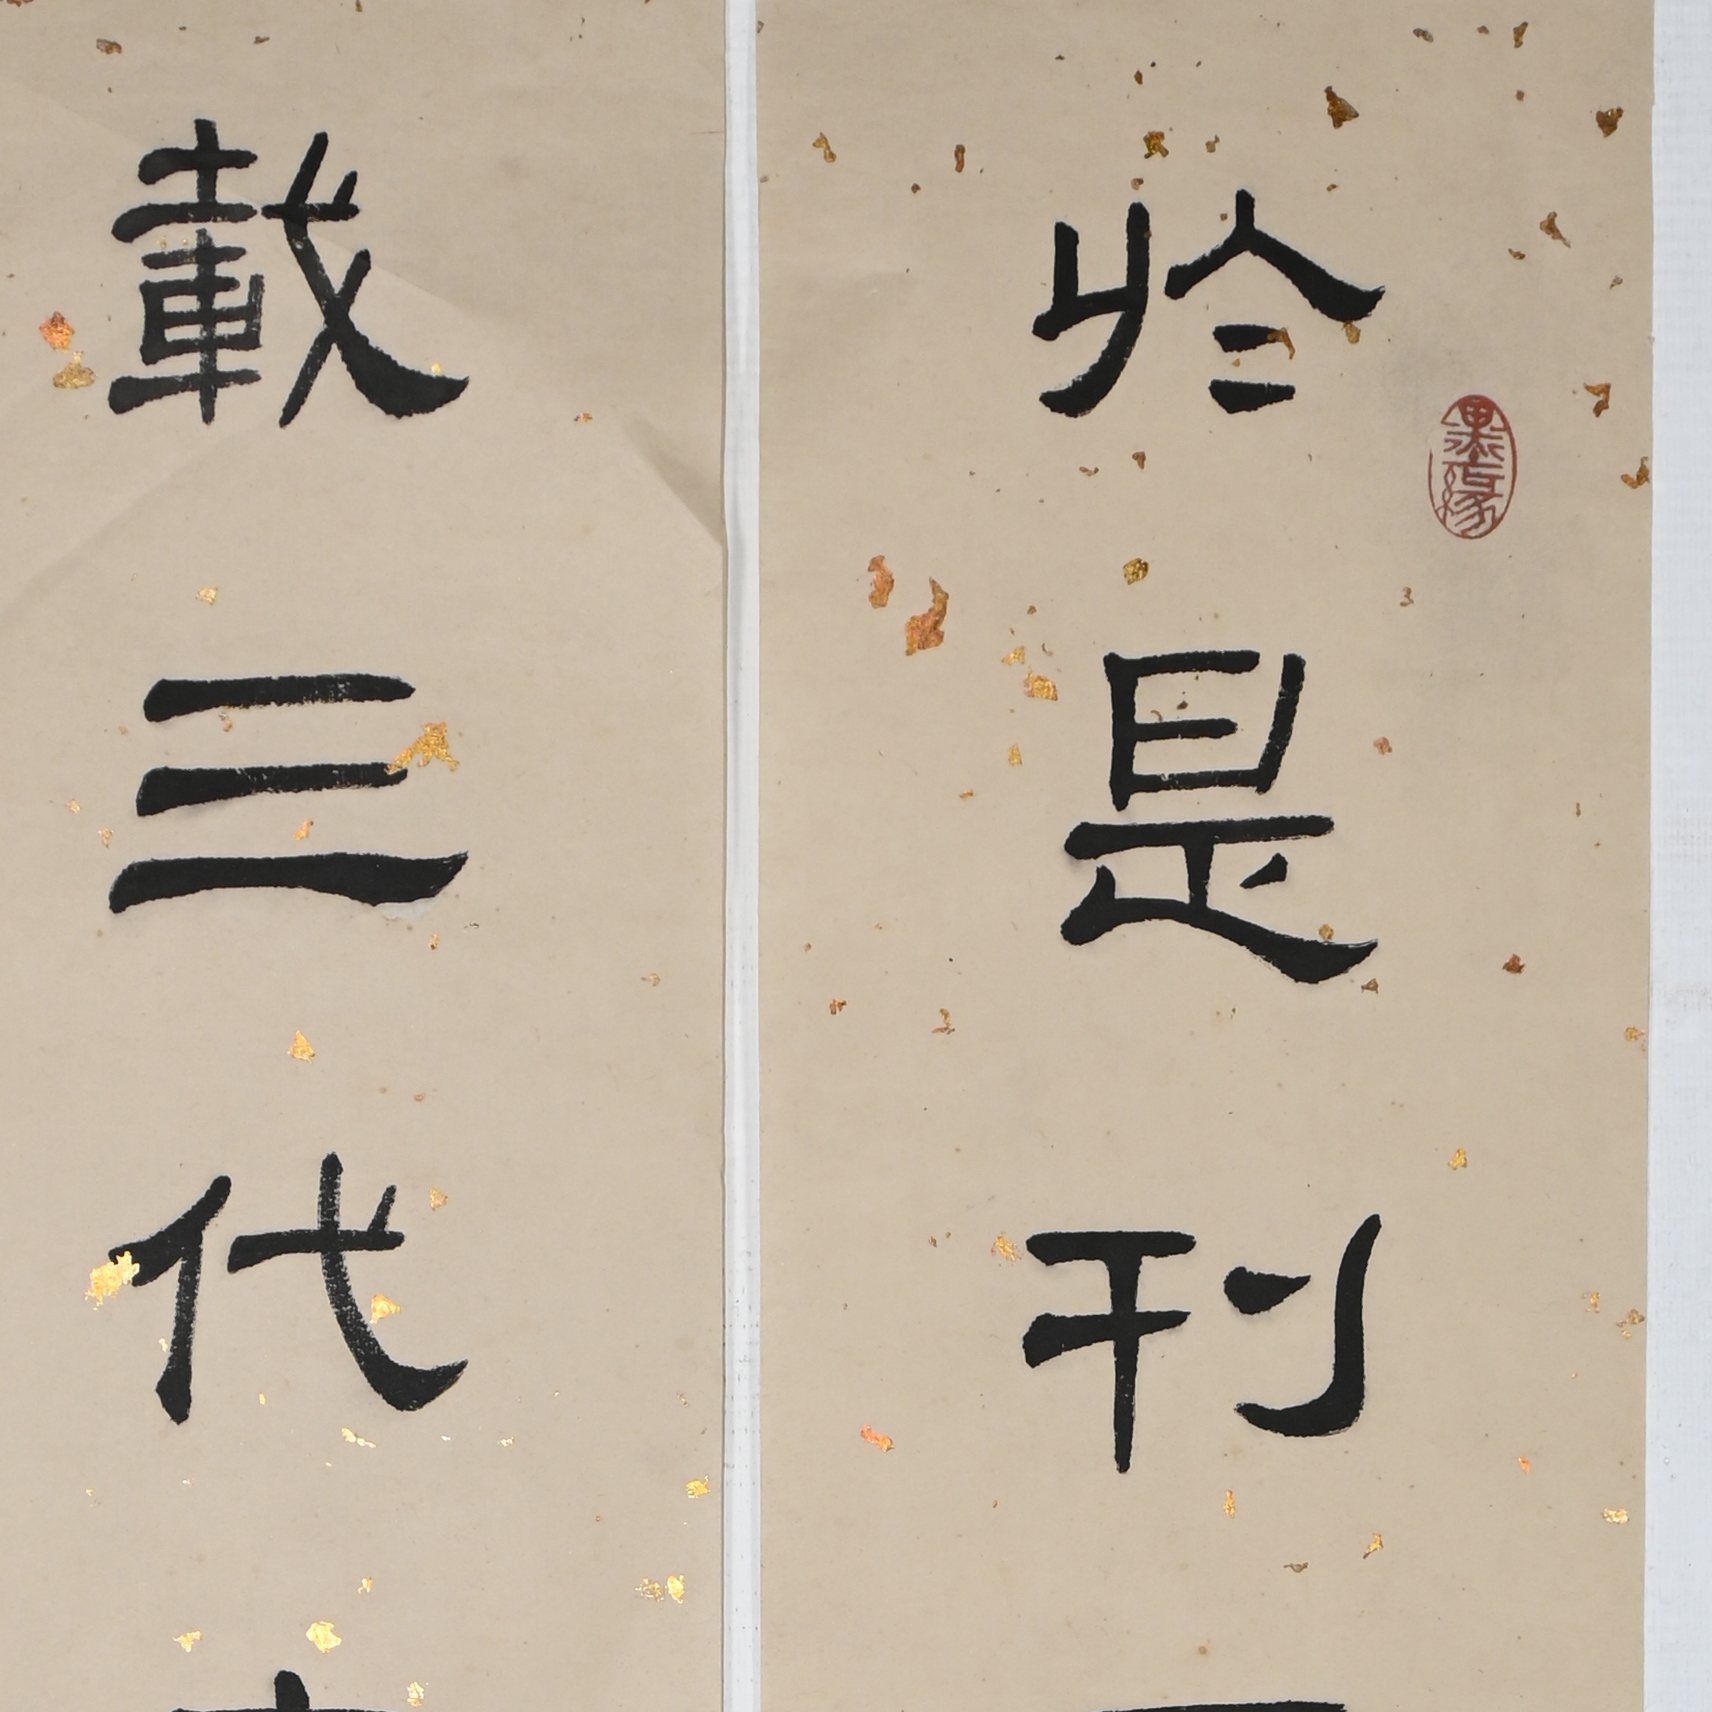 於是刊
墨緣
載三代